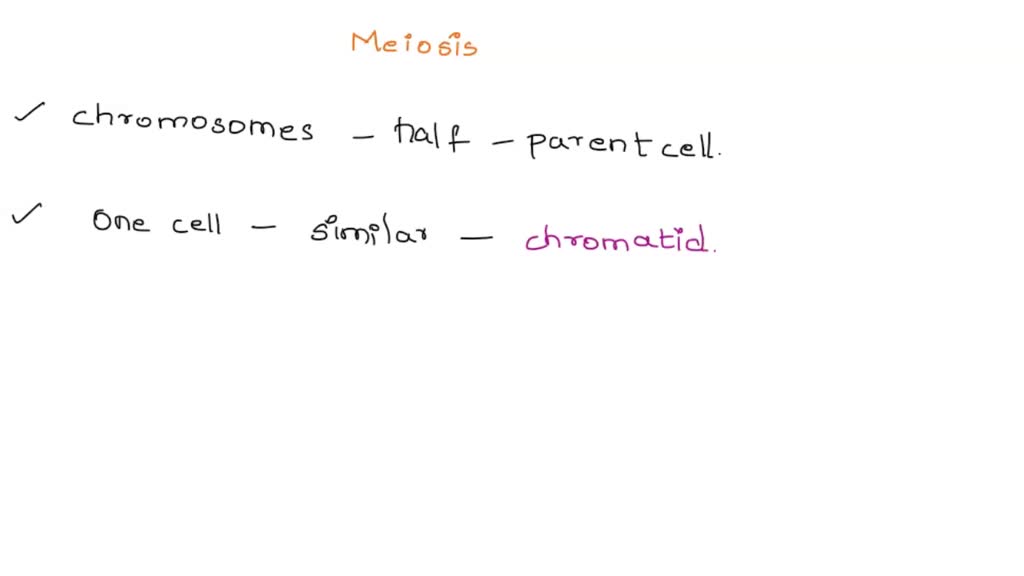 Meiosis
✓ chromosomes - half - parent cell.
✓ One cell - similar - chromatid.